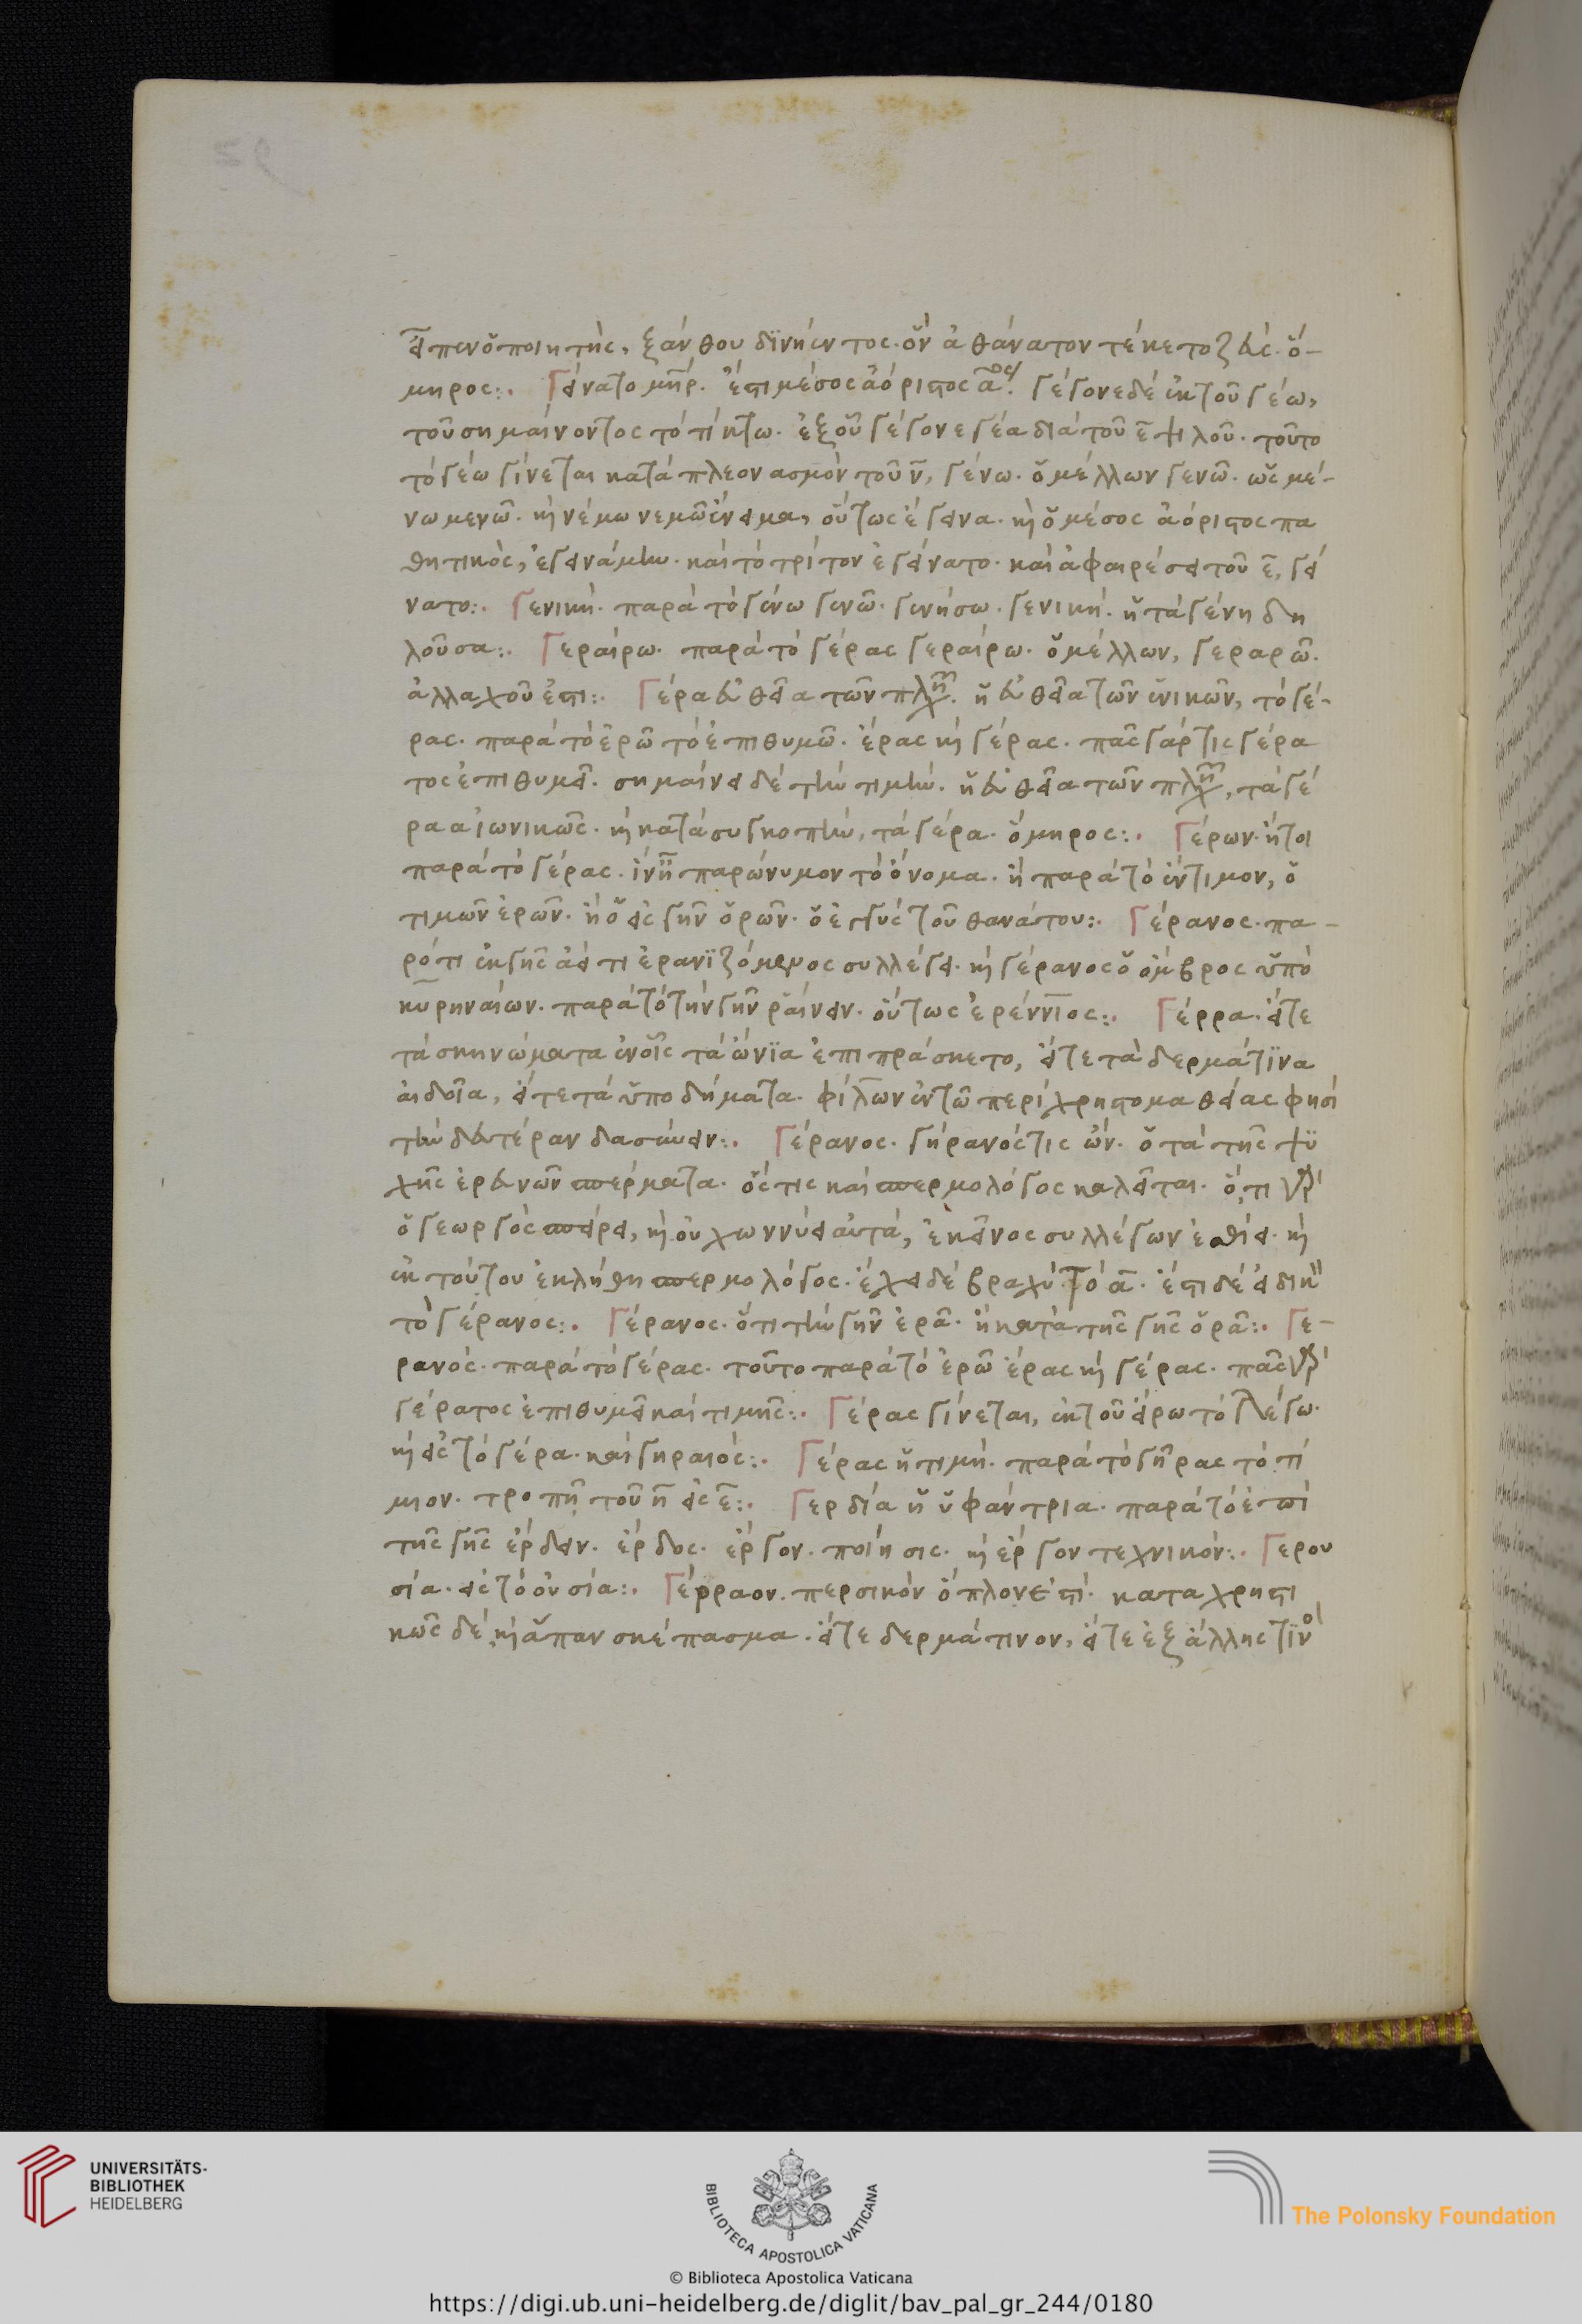 εἶπεν ὁ ποιητὴς, ξάνθου δϊνήεντος. ὃν ἀθάνατον τέκετο ζεὺς. ὅ-
μηρος:. Γείνατο μη̅ρ. ἔστι μέσος ἀόριστος α̅ος. γέγονε δὲ ἐκ τοῦ γέω,
τοῦ σημαίνοντος τὸ τίκτω. ἐξ οὗ γέγονε γέα διὰ τοῦ ε̅ ψιλοῦ. τοῦτο
τὸ γέω γίνεται κατὰ πλεονασμὸν τοῦ ν̅, γένω. ὁ μέλλων γενῶ. ὡς μέ-
νω μενῶ. καὶ νέμω νεμῶ ἔνειμα, οὕτως ἔγεινα. καὶ ὁ μέσος ἀόριστος πα
θητικὸς, ἐγεινάμην. καὶ τὸ τρίτον ἐγείνατο. καὶ ἀφαιρέσει τοῦ ε̅, γεί
νατο:. Γενική. παρὰ τὸ γένω γενῶ. γενήσω. γενική. ἡ τὰ γένη δη
λοῦσα:. Γεραίρω. παρὰ τὸ γέρας γεραίρω. ὁ μέλλων, γεραρῶ.
ἀλλαχοῦ ἐστι:. Γέρα εὐθεῖα τῶν πλη. ἡ εὐθεῖα τῶν ἑνικῶν, τὸ γέ-
ρας. παρὰ τὸ ἐρῶ τὸ ἐπιθυμῶ. ἔρας καὶ γέρας. πᾶς γάρ τις γέρα
τος ἐπιθυμεῖ. σημαίνει δὲ τὴν τιμήν. ἡ εὐθεῖα τῶν πλη, τὰ γέ
ραα ἰωνικῶς. καὶ κατὰ συγκοπὴν, τὰ γέρα. ὅμηρος:. Γέρων. ἤτοι
παρὰ τὸ γέρας. ἵν ᾖ παρώνυμον τὸ ὄνομα. ἢ παρὰ τὸ ἔντιμον, ὁ
τιμῶν ἐρῶν. ἢ ὁ εἰς γῆν ὁρῶν. ὁ ἐγγὺς τοῦ θανάτου:. Γέρανος. πα-
ρότι ἐκ γῆς ἀεί τι ἐρανϊζόμενος συλλέγει. καὶ γέρανος ὁ ὄμβρος ὑπὸ
κυρηναίων. παρὰ τὸ τὴν γῆν ραίνειν. οὕτως ἐρέννιος:. Γέρρα. εἴτε
τὰ σκηνώματα ἐν οἷς τὰ ὤνϊα ἐπιπράσκετο, εἴτε τὰ δερμάτϊνα
αἰδοῖα, εἴτε τὰ ὑποδήματα. φίλων ἐν τῶ περὶ χρηστομαθείας φησὶ
τὴν δευτέραν δασύνειν:. Γέρανος. γήρανός τις ὢν. ὁ τὰ τῆς ψϋ
χῆς ἐρευνῶν σπέρματα. ὅς τις καὶ σπερμολόγος καλεῖται. ὅ,τι γὰρ
ὁ γεωργὸς σπείρει, καὶ οὐ χωννύει αὐτά, ἐκεῖνος συλλέγων ἐσθίει. καὶ
ἐκ τούτου ἐκλήθη σπερμολόγος. ἔχει δὲ βραχὺ τὸ α̅. ἔστι δὲ εἰδικὸν
τὸ γέρανος:. Γέρανος. ὅτι τὴν γῆν ἐρᾶ. ἢ κατὰ τῆς γῆς ὁρᾶ:. Γε-
ρανός. παρὰ τὸ γέρας. τοῦτο παρὰ τὸ ἐρῶ ἔρας καὶ γέρας. πᾶς γὰρ
γέρατος ἐπιθυμεῖ καὶ τιμῆς:. Γέρας γίνεται, ἐκ τοῦ εἴρω τὸ λέγω.
καὶ εἰς τὸ γέρα. καὶ γηραιός:. Γέρας ἡ τιμή. παρὰ τὸ γῆρας τὸ τί
μιον. τροπῇ τοῦ η̅ εἰς ε̅:. Γερδία ἡ ὑφάντρια. παρὰ τὸ ἐπὶ
τῆς γῆς ἔρδειν. ἔρδος. ἔργον. ποίησις. καὶ ἔργον τεχνικόν:. Γερου
σία. εἰς τὸ οὐσία:. Γέρραον. περσικὸν ὅπλον ἐστί. καταχρηστι
κῶς δὲ καὶ ἅπαν σκέπασμα. εἴτε δερμάτινον, εἴτε ἐξ ἄλλης τϊνὸς
UNIVERSITÄTS-
BIBLIOTHEK
HEIDELBERG
BIBLIOTECA APOSTOLICA VATICANA
The Polonsky Foundation
© Biblioteca Apostolica Vaticana
https://digi.ub.uni-heidelberg.de/diglit/bav_pal_gr_244/0180